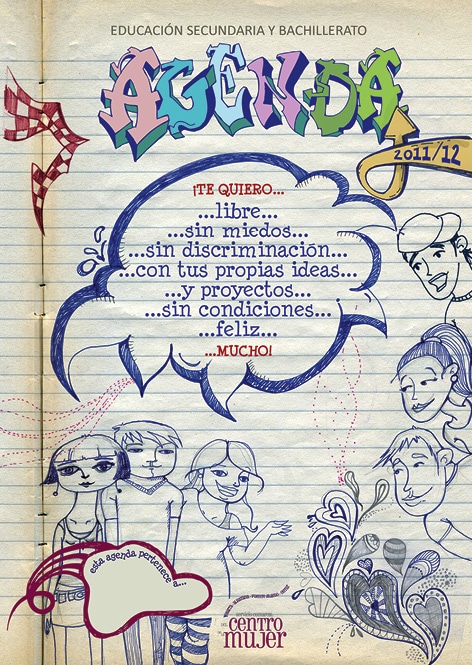 EDUCACIÓN SECUNDARIA Y BACHILLERATO
AGENDA
2011/12
¡TE QUIERO...
...libre...
...sin miedos...
...sin discriminación...
...con tus propias ideas...
...y proyectos...
...sin condiciones...
...feliz...
...MUCHO!
esta agenda pertenece a...
CENTRO
mujer